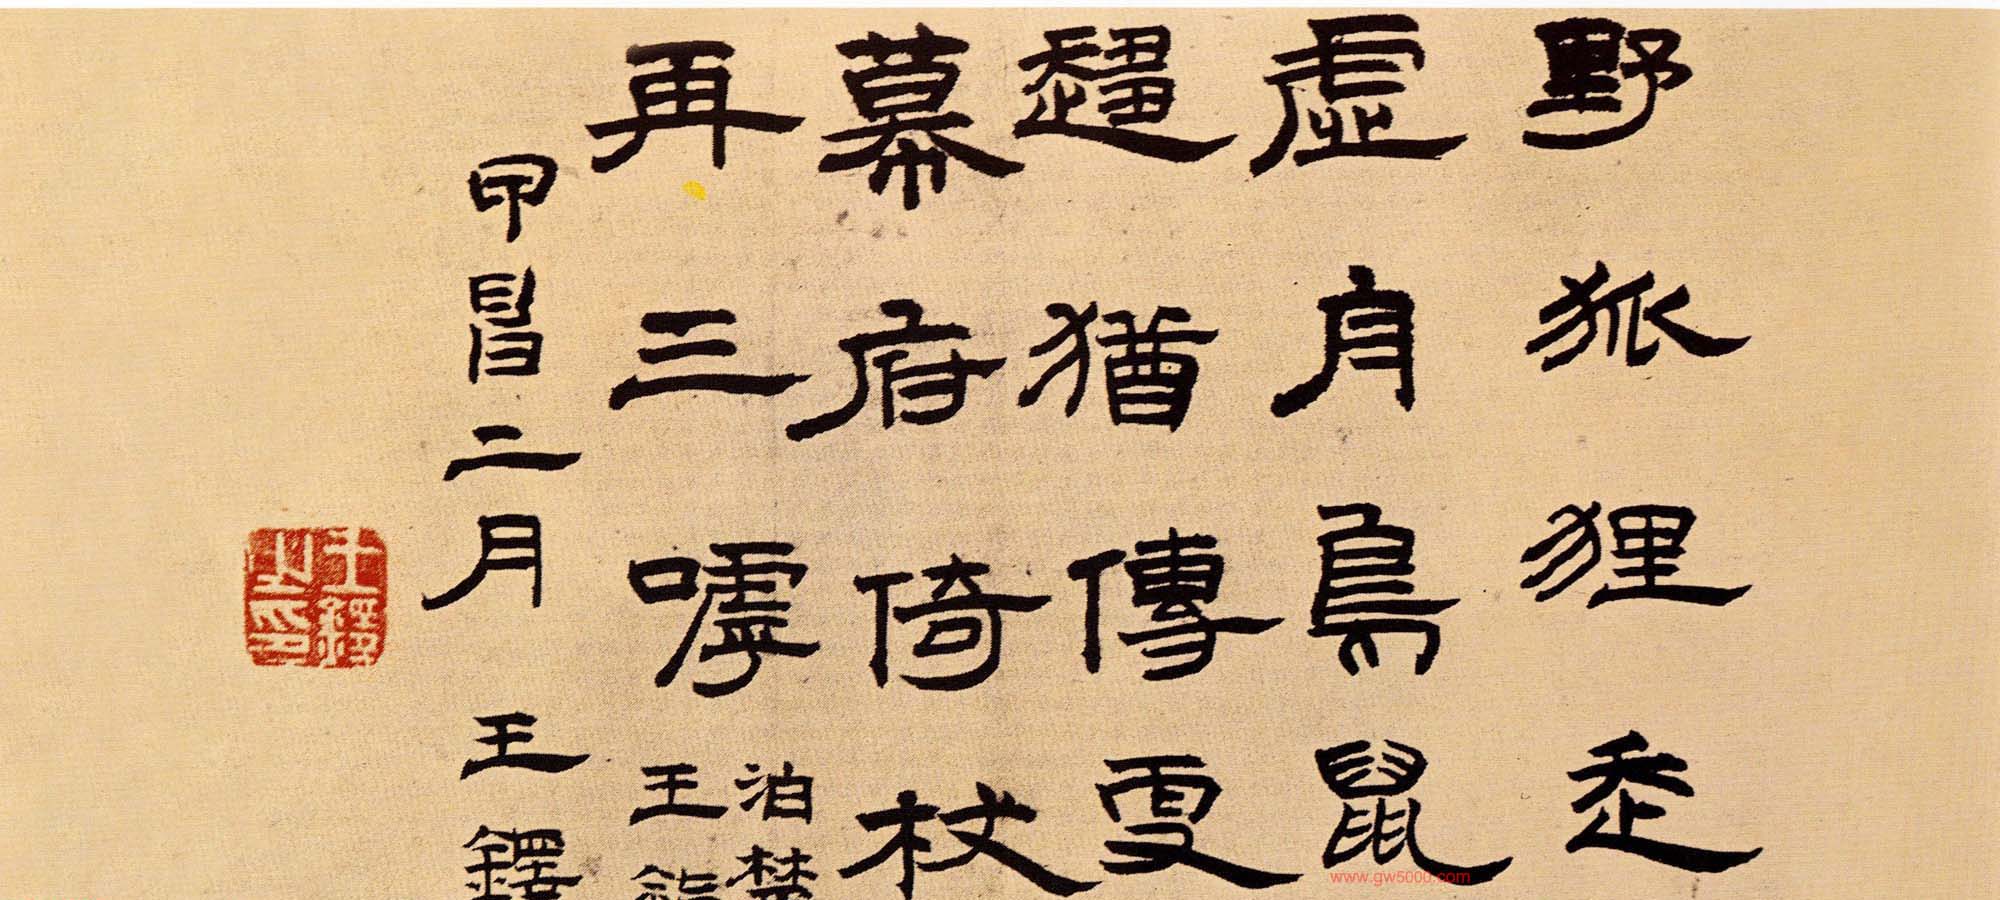 野狐狸走
虛身鳥鼠
趨猶傳
幕府倚杖
再三嘑
泊楚
王
甲申二月 王鐸
王鐸之印
www.gw5000.com